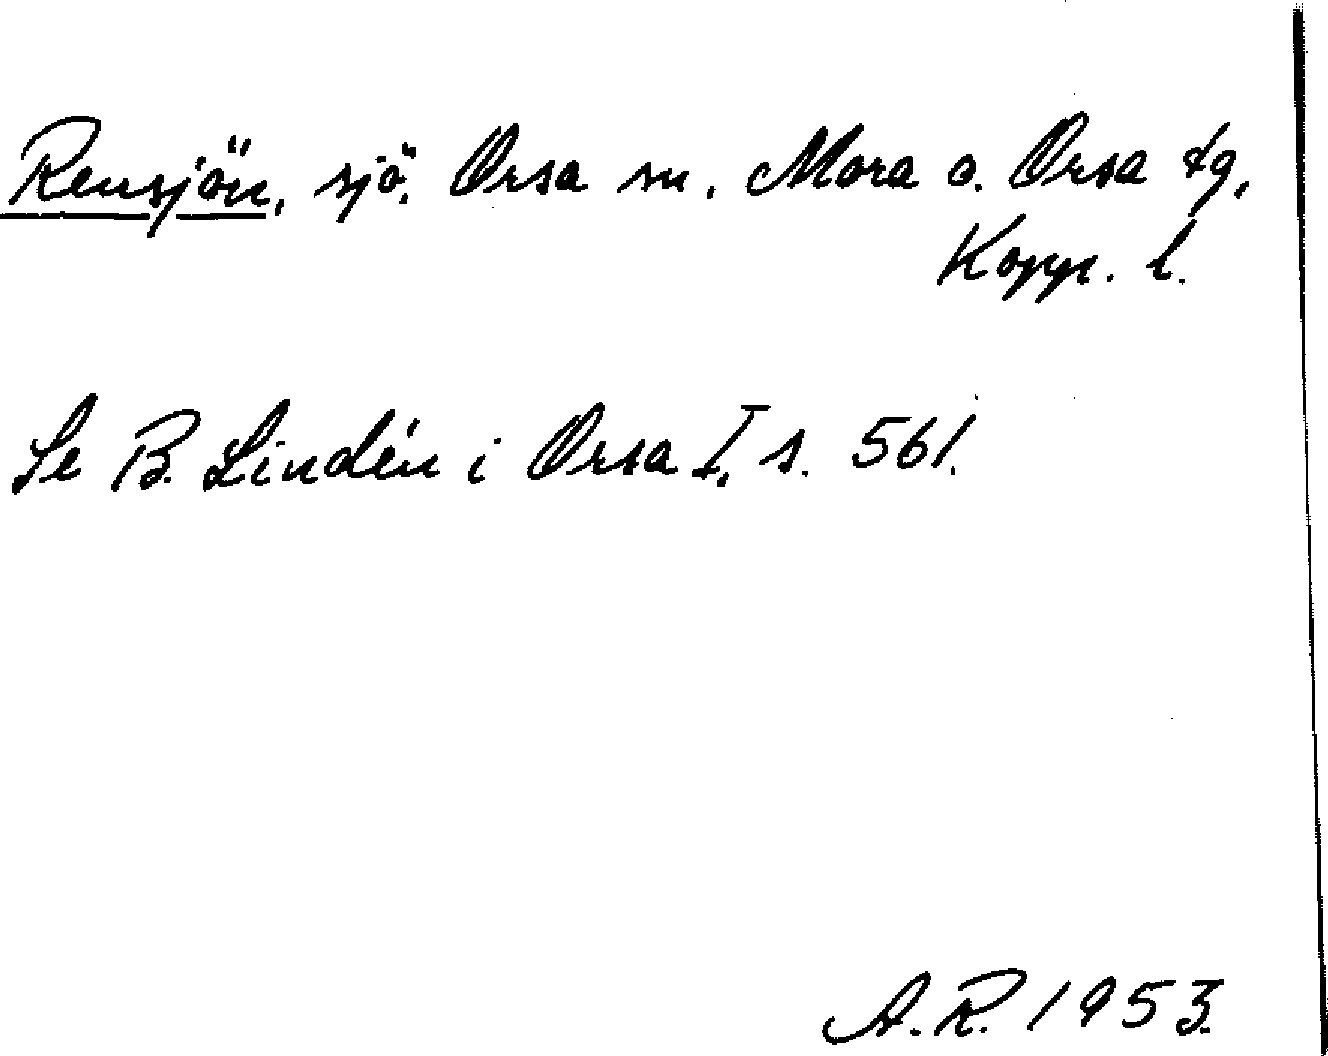 Rensjön, sjö, Orsa sn, Mora o. Orsa tg,
Kopp. l.
Se B. Lindén i Orsa I, s. 561.
A.R. 1953.